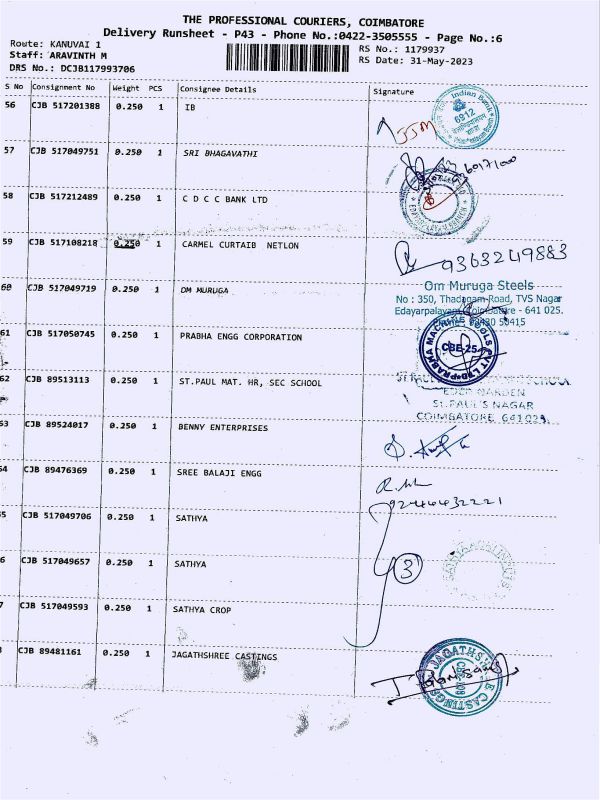 THE PROFESSIONAL COURIERS, COIMBATORE
Delivery Runsheet - P43 - Phone No.:0422-3505555 - Page No.:6
Route: KANUVAI 1
RS No.: 1179937
Staff: ARAVINTH M
RS Date: 31-May-2023
DRS No.: DCJB117993706
S No Consignment No Weight PCS Consignee Details Signature
56 CJB 517201388 0.250 1 IB
Indian Bank
6812
57 CJB 517049751 0.250 1 SRI BHAGAVATHI
58 CJB 517212489 0.250 1 C D C C BANK LTD
59 CJB 517108218 0.250 1 CARMEL CURTAIB NETLON
9363249883
60 CJB 517049719 0.250 1 OM MURUGA
Om Muruga Steels
No : 350, Thadagam Road, TVS Nagar
Edayarpalayam, Coimbatore - 641 025.
61 CJB 517050745 0.250 1 PRABHA ENGG CORPORATION
PRABHA MACHINE TOOLS PVT LTD
CBE-25
62 CJB 89513113 0.250 1 ST.PAUL MAT. HR, SEC SCHOOL
EDEN GARDEN
ST.PAUL'S NAGAR
COIMBATORE 641029
63 CJB 89524017 0.250 1 BENNY ENTERPRISES
64 CJB 89476369 0.250 1 SREE BALAJI ENGG
9244432221
5 CJB 517049706 0.250 1 SATHYA
6 CJB 517049657 0.250 1 SATHYA
3
7 CJB 517049593 0.250 1 SATHYA CROP
CJB 89481161 0.250 1 JAGATHSHREE CASTINGS
JAGATHSHREE CASTINGS